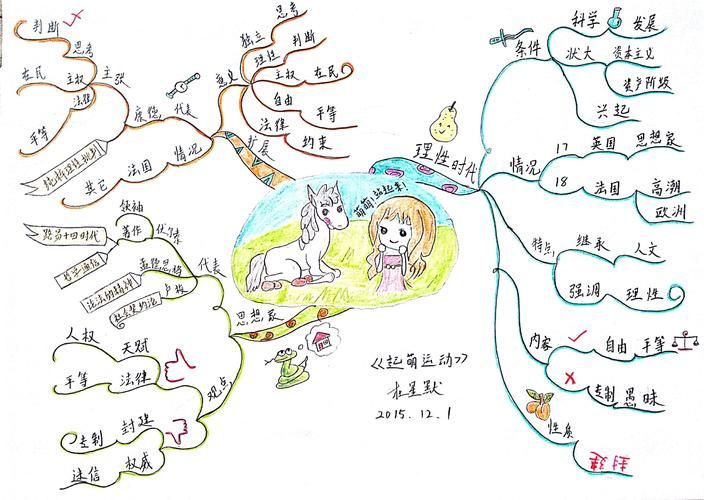 理性时代
条件
科学
发展
状大
资本主义
资产阶级
兴起
情况
17
英国
思想家
18
法国
高潮
欧洲
特点
继承
人文
强调
理性
内容
自由
平等
专制
愚昧
性质
扩展
意义
思考
独立
理性
判断
主权
在民
自由
平等
法律
约束
情况
法国
其它
代表
康德
主张
思考
判断
主权
在民
法律
平等
纯粹理性批判
思想家
代表
伏尔泰
领袖
著作
路易十四时代
哲学通信
孟德思鸠
论法的精神
卢梭
社会契约论
观点
天赋
人权
法律
平等
封建
专制
权威
迷信
萌萌!站起来!
《起萌运动》
2015.12.1